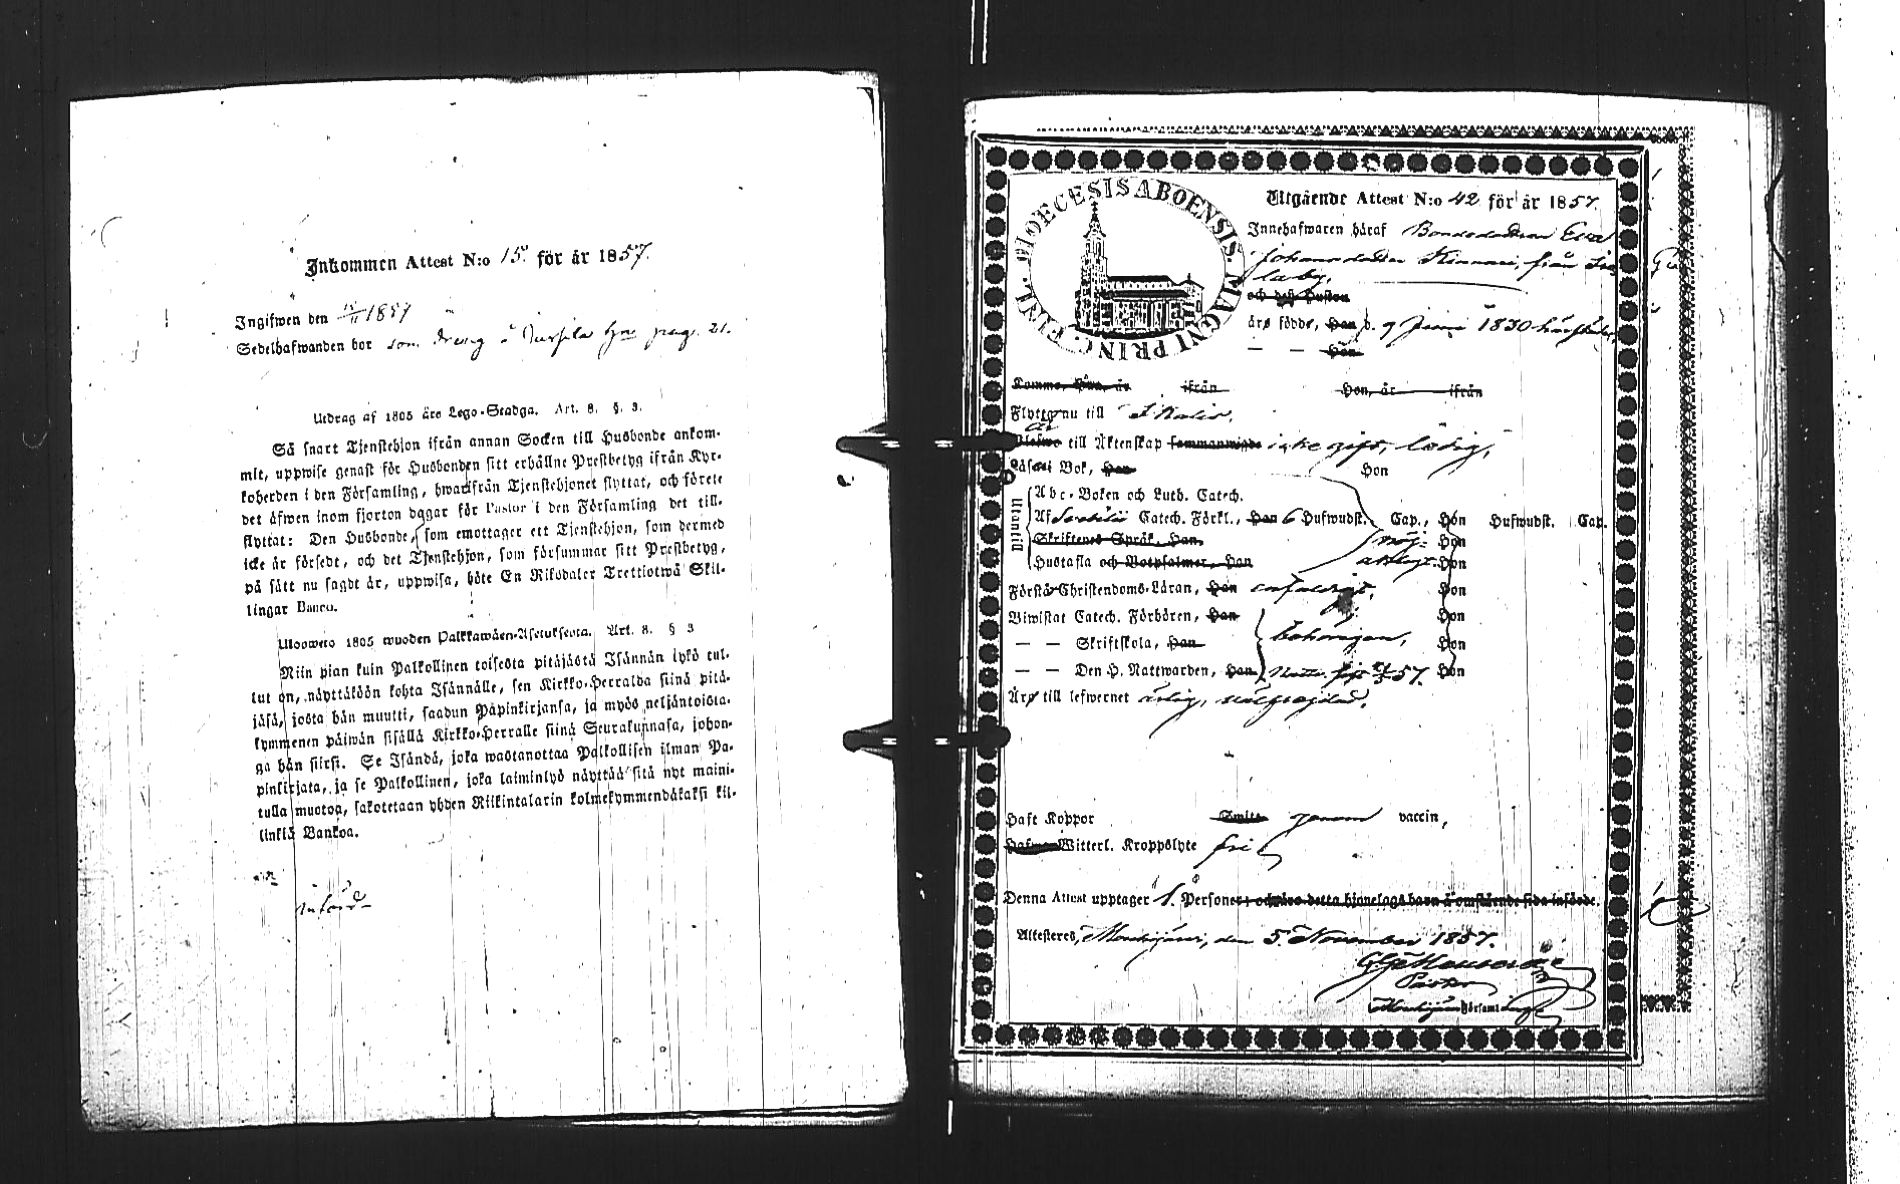 Inkommen Attest N:o 15. för år 1857.
Ingifwen den 15/11 1857
Sedelhafwanden bor som dräng å hn pag. 21.
Utdrag af 1805 års Lego-Stadga. Art. 8. §. 3.
Så snart Tjenstehjon ifrån annan Socken till Husbonde ankom-
mit, uppwise genast för Husbonden sitt erhållne Prestbetyg ifrån Kyr-
koherden i den Församling, hwarifrån Tjenstehjonet flyttat, och förete
det äfwen inom fjorton dagar för Pastor i den Församling det till-
flyttat: Den Husbonde, som emottager ett Tjenstehjon, som dermed
icke är försedt, och det Tjenstehjon, som försummar sitt Prestbetyg,
på sätt nu sagdt är, uppwisa, böte En Riksdaler Trettiotwå Skil-
lingar Banco.
Ulosweto 1805 wuoden Palkkawäen-Asetuksesta. Art. 8. § 3
Niin pian kuin Palkollinen toisesta pitäjästä Isännän tykö tul-
lut on, näyttäköön kohta Isännälle, sen Kirkko-Herralda siinä pitä-
jäsä, josta hän muutti, saadun Papinkirjansa, ja myös neljäntoista-
kymmenen päiwän sisällä Kirkko-Herralle siinä Seurakunnasa, johon-
ga hän siirsi. Se Isändä, joka wastanottaa Palkollisen ilman Pa-
pinkirjata, ja se Palkollinen, joka laiminlyö näyttää sitä nyt maini-
tulla muotoa, sakotetaan yhden Riikintalarin kolmekymmendäkaksi kil-
linkiä Bankoa.
Införd
DIOECESIS ABOENSIS. MAGNI PRINC. FINL.
Utgående Attest N:o 42 för år 1857.
Innehafwaren häraf Bondedottren Eva
Johansdotter Kinnari, från
laby,
och deß Hustru
äro födde, Han d. 9 Juni 1830 härstädes,
— — Hon
Komme, Han, år ifrån Hon, år ifrån
Flyttar nu till Ikalis.
är
till Äktenskap sammanwigde icke gift, ledig,
Läser i Bok, Han Hon
Utantill
Abc-Boken och Luth. Catech.
Af Catech. Förkl., Han 6 Hufwudst. Cap., Hon Hufwudst. Cap.
Skriftenes Språk, Han Hon
Hustafla och Botpsalmer, Han Hon
Förstår Christendoms-Läran, Han enfaldigt, Hon
Biwistat Catech. Förhören, Han Hon
— — Skriftskola, Han behörigen, Hon
— — Den H. Nattwarden, Han 57. Hon
Äro till lefwernet ärlig, välfrejdad.
Haft Koppor Smitt genom vaccin,
Hafwa Witterl. Kroppslyte fri
Denna Attest upptager 1. Personer; och äro detta hjonelags barn å omstående sida införde.
Attesteres, Mouhijärvi, den 5. November 1857.
Pastor
Mouhijärvi Församling